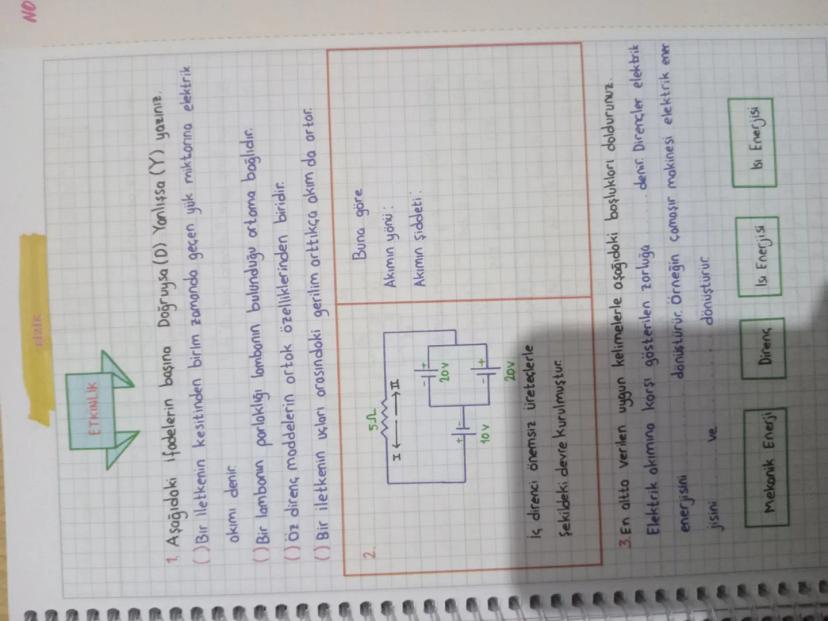 NO
FİZİK
ETKİNLİK
1. Aşağıdaki ifadelerin başına Doğruysa (D) Yanlışsa (Y) yazınız.
( ) Bir iletkenin kesitinden birim zamanda geçen yük miktarına elektrik
akımı denir.
( ) Bir lambanın parlaklığı lambanın bulunduğu ortama bağlıdır.
( ) Öz direnç maddelerin ortak özelliklerinden biridir.
( ) Bir iletkenin uçları arasındaki gerilim arttıkça akım da artar.
2.
5Ω
I ← → II
- +
20V
+ -
10V
- +
20V
İç direnci önemsiz üreteçlerle
şekildeki devre kurulmuştur.
Buna göre
Akımın yönü:
Akımın şiddeti:
3. En altta verilen uygun kelimelerle aşağıdaki boşlukları doldurunuz.
Elektrik akımına karşı gösterilen zorluğa ..... denir. Dirençler elektrik
enerjisini ..... dönüştürür. Örneğin çamaşır makinesi elektrik ener
jisini ..... ve ..... dönüştürür
Mekanik Enerji
Direnç
Isı Enerjisi
Isı Enerjisi